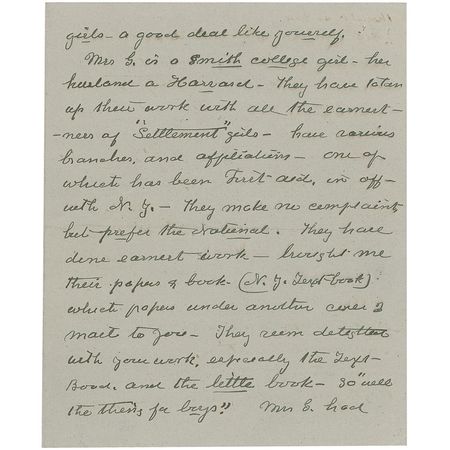 girls - a good deal like yourself.
Mrs G. is a Smith college girl - her
husband a Harvard - They have taken
up their work with all the earnest-
ness of "Settlement" girls - have various
branches, and affiliations - one of
which has been First aid, in off-
with N. Y. - They make no complaint
but prefer the National. They have
done earnest work - brought me
their papers & book - (N. Y. Text-book)
which papers under another cover I
mail to you - They seem delighted
with your work, especially the Text-
Book. and the little book - so "well
the thing for boys". Mrs G. had